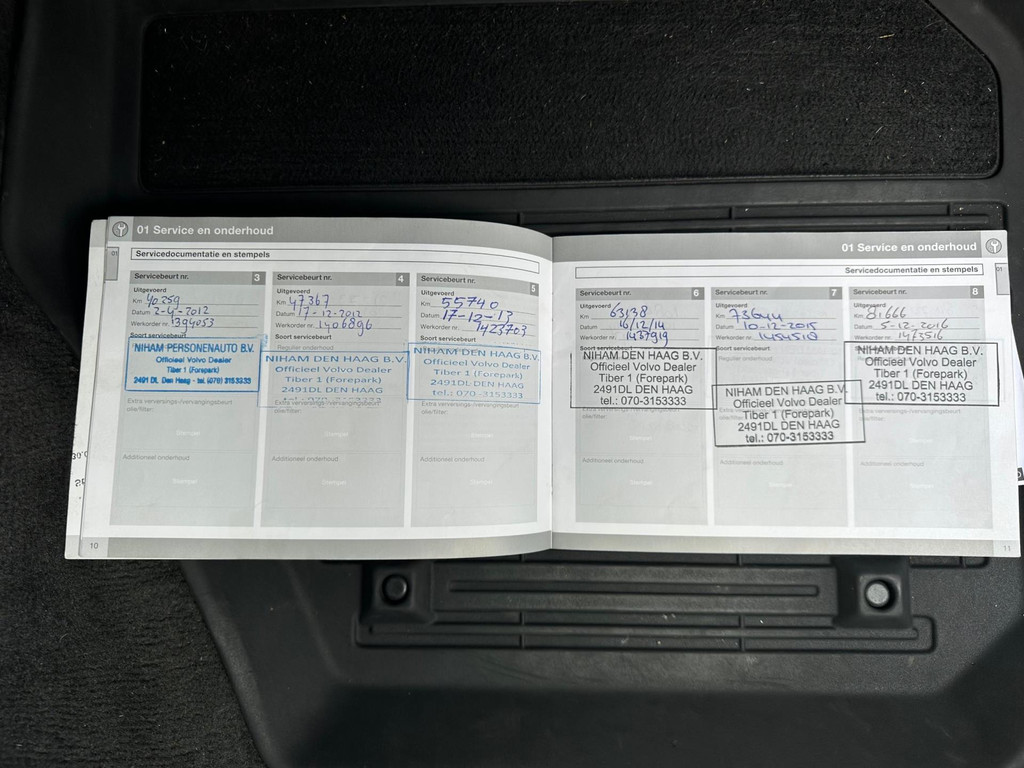 01 Service en onderhoud
01
Servicedocumentatie en stempels
Servicebeurt nr. 3
Uitgevoerd
Km 40259
Datum 2-4-2012
Werkorder nr. 1394053
Soort servicebeurt
NIHAM PERSONENAUTO B.V.
Officieel Volvo Dealer
Tiber 1 (Forepark)
2491 DL Den Haag - tel. (070) 3153333
Extra verversings-/vervangingsbeurt
olie/filter:
Stempel
Additioneel onderhoud
Stempel
Servicebeurt nr. 4
Uitgevoerd
Km 47367
Datum 17-12-2012
Werkorder nr. 1406896
Soort servicebeurt
Regulier onderhoud
NIHAM DEN HAAG B.V.
Officieel Volvo Dealer
Tiber 1 (Forepark)
2491DL DEN HAAG
Extra verversings-/vervangingsbeurt
olie/filter:
Stempel
Additioneel onderhoud
Stempel
Servicebeurt nr. 5
Uitgevoerd
Km 55740
Datum 17-12-13
Werkorder nr. 1423703
Soort servicebeurt
NIHAM DEN HAAG B.V.
Officieel Volvo Dealer
Tiber 1 (Forepark)
2491DL DEN HAAG
tel.: 070-3153333
Extra verversings-/vervangingsbeurt
olie/filter:
Stempel
Additioneel onderhoud
Stempel
10
01 Service en onderhoud
01
Servicedocumentatie en stempels
Servicebeurt nr. 6
Uitgevoerd
Km 63138
Datum 16/12/14
Werkorder nr. 1437919
Soort servicebeurt
NIHAM DEN HAAG B.V.
Officieel Volvo Dealer
Tiber 1 (Forepark)
2491DL DEN HAAG
tel.: 070-3153333
Extra verversings-/vervangingsbeurt
olie/filter:
Stempel
Additioneel onderhoud
Stempel
Servicebeurt nr. 7
Uitgevoerd
Km 73644
Datum 10-12-2015
Werkorder nr.
Soort servicebeurt
Regulier onderhoud
NIHAM DEN HAAG B.V.
Officieel Volvo Dealer
Tiber 1 (Forepark)
2491DL DEN HAAG
tel.: 070-3153333
Additioneel onderhoud
Stempel
Servicebeurt nr. 8
Uitgevoerd
Km 81.666
Datum 5-12-2016
Werkorder nr. 1473516
Soort servicebeurt
NIHAM DEN HAAG B.V.
Officieel Volvo Dealer
Tiber 1 (Forepark)
2491DL DEN HAAG
tel.: 070-3153333
Extra verversings-/vervangingsbeurt
olie/filter:
Stempel
Additioneel onderhoud
Stempel
11